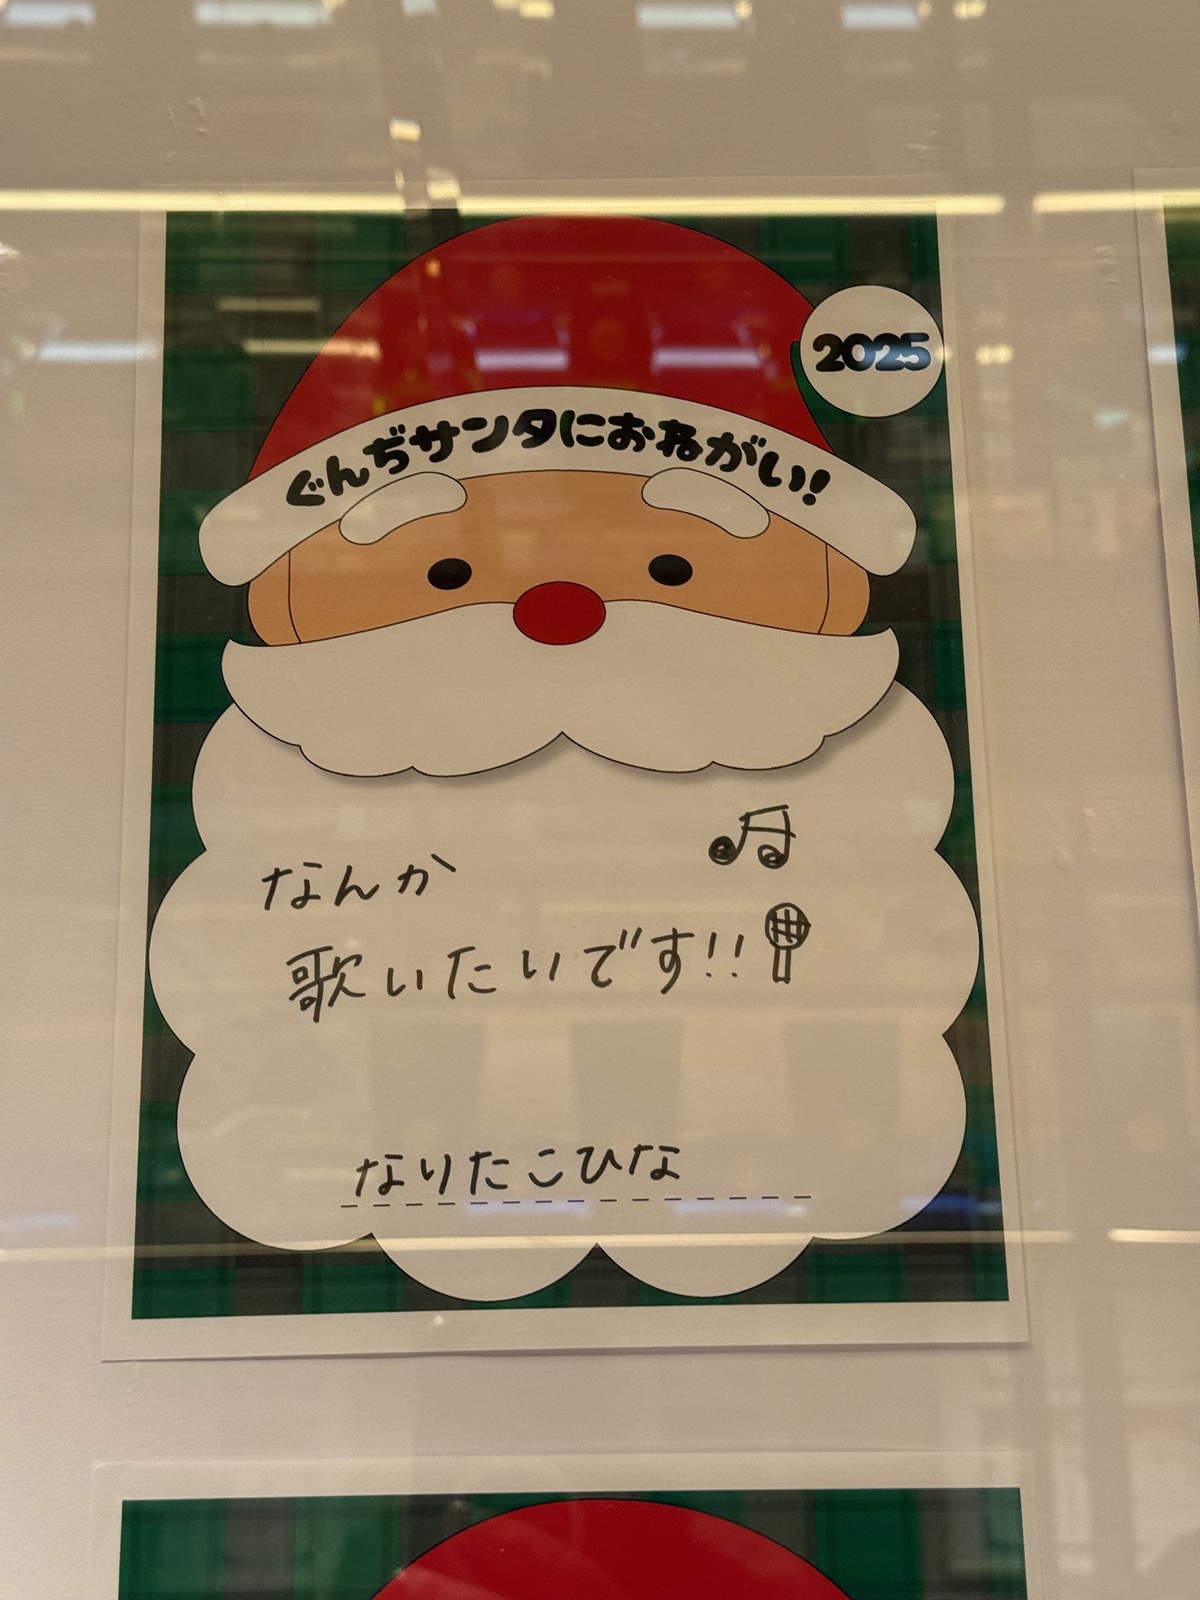 2025
ぐんぢサンタにおねがい!
なんか
歌いたいです!!
なりたこひな